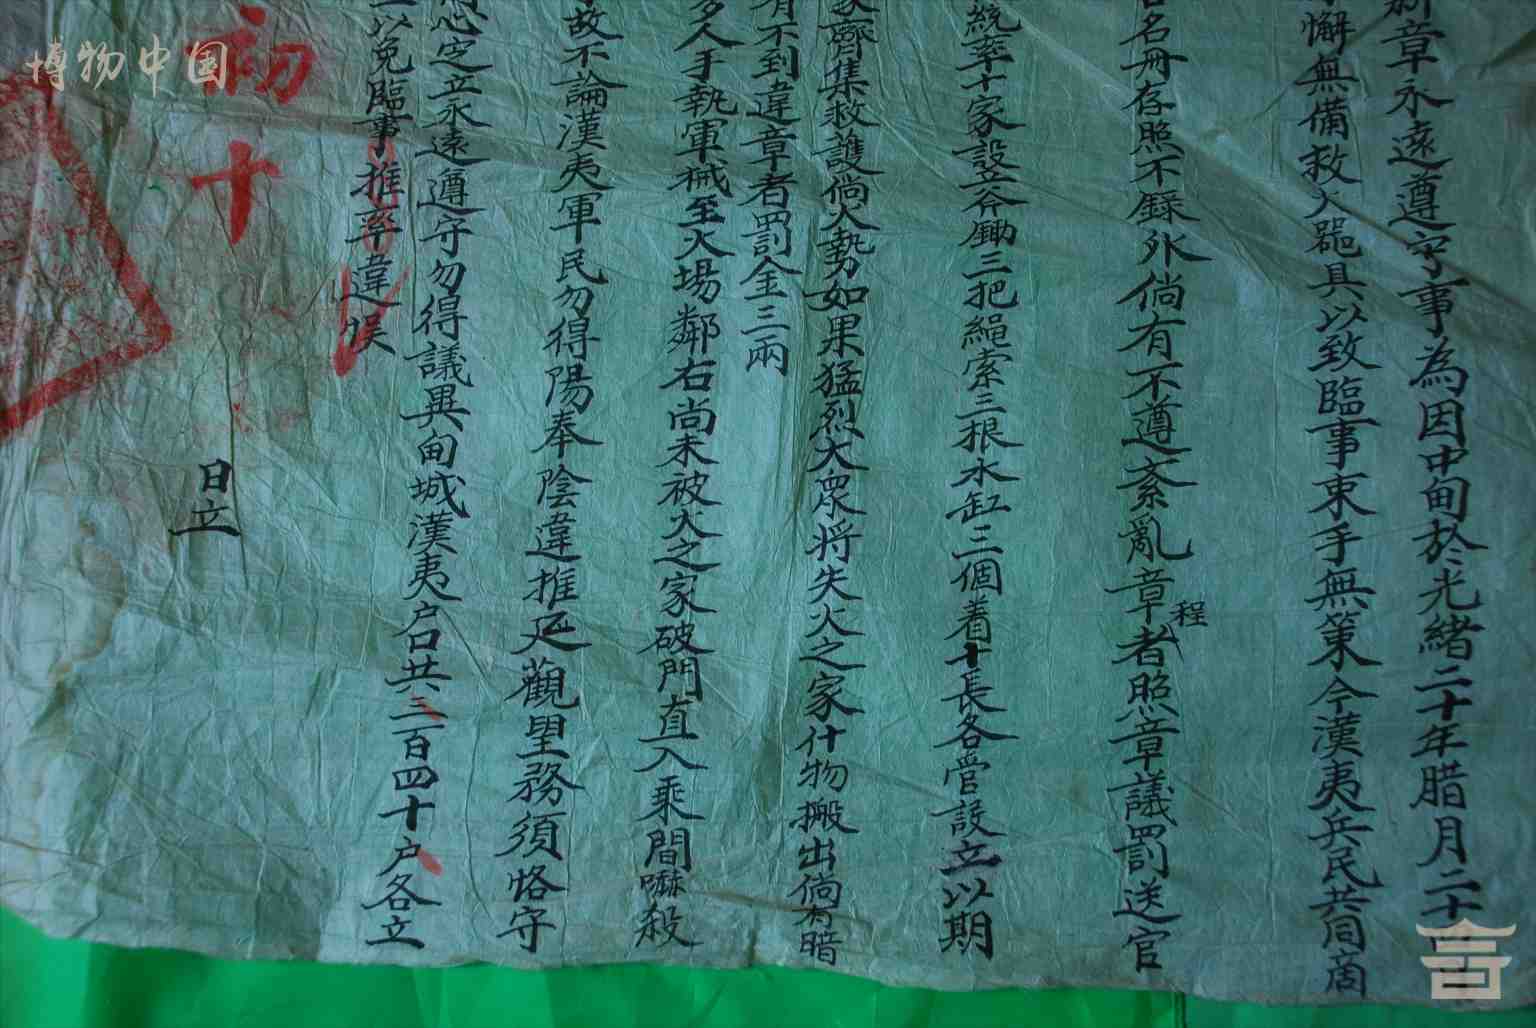 新章永遠遵守事為因中甸於光緒二十年腊月二十
懈無備救火器具以致臨事束手無策今漢夷兵民共同商
名冊存照不錄外倘有不遵紊亂章程者照章議罰送官
統率十家設立斧鋤三把繩索三根水缸三個着十長各管設立以期
家齊集救護倘火勢如果猛烈大眾將失火之家什物搬出倘有暗
有不到違章者罰金三兩
多人手執軍械至火場鄰右尚未被火之家破門直入乘間嚇殺
故不論漢夷軍民勿得陽奉陰違推延觀望務須恪守
心定立永遠遵守勿得議異甸城漢夷户口共三百四十户各立
以免臨事推卒違悮
初十
日立
博物中国